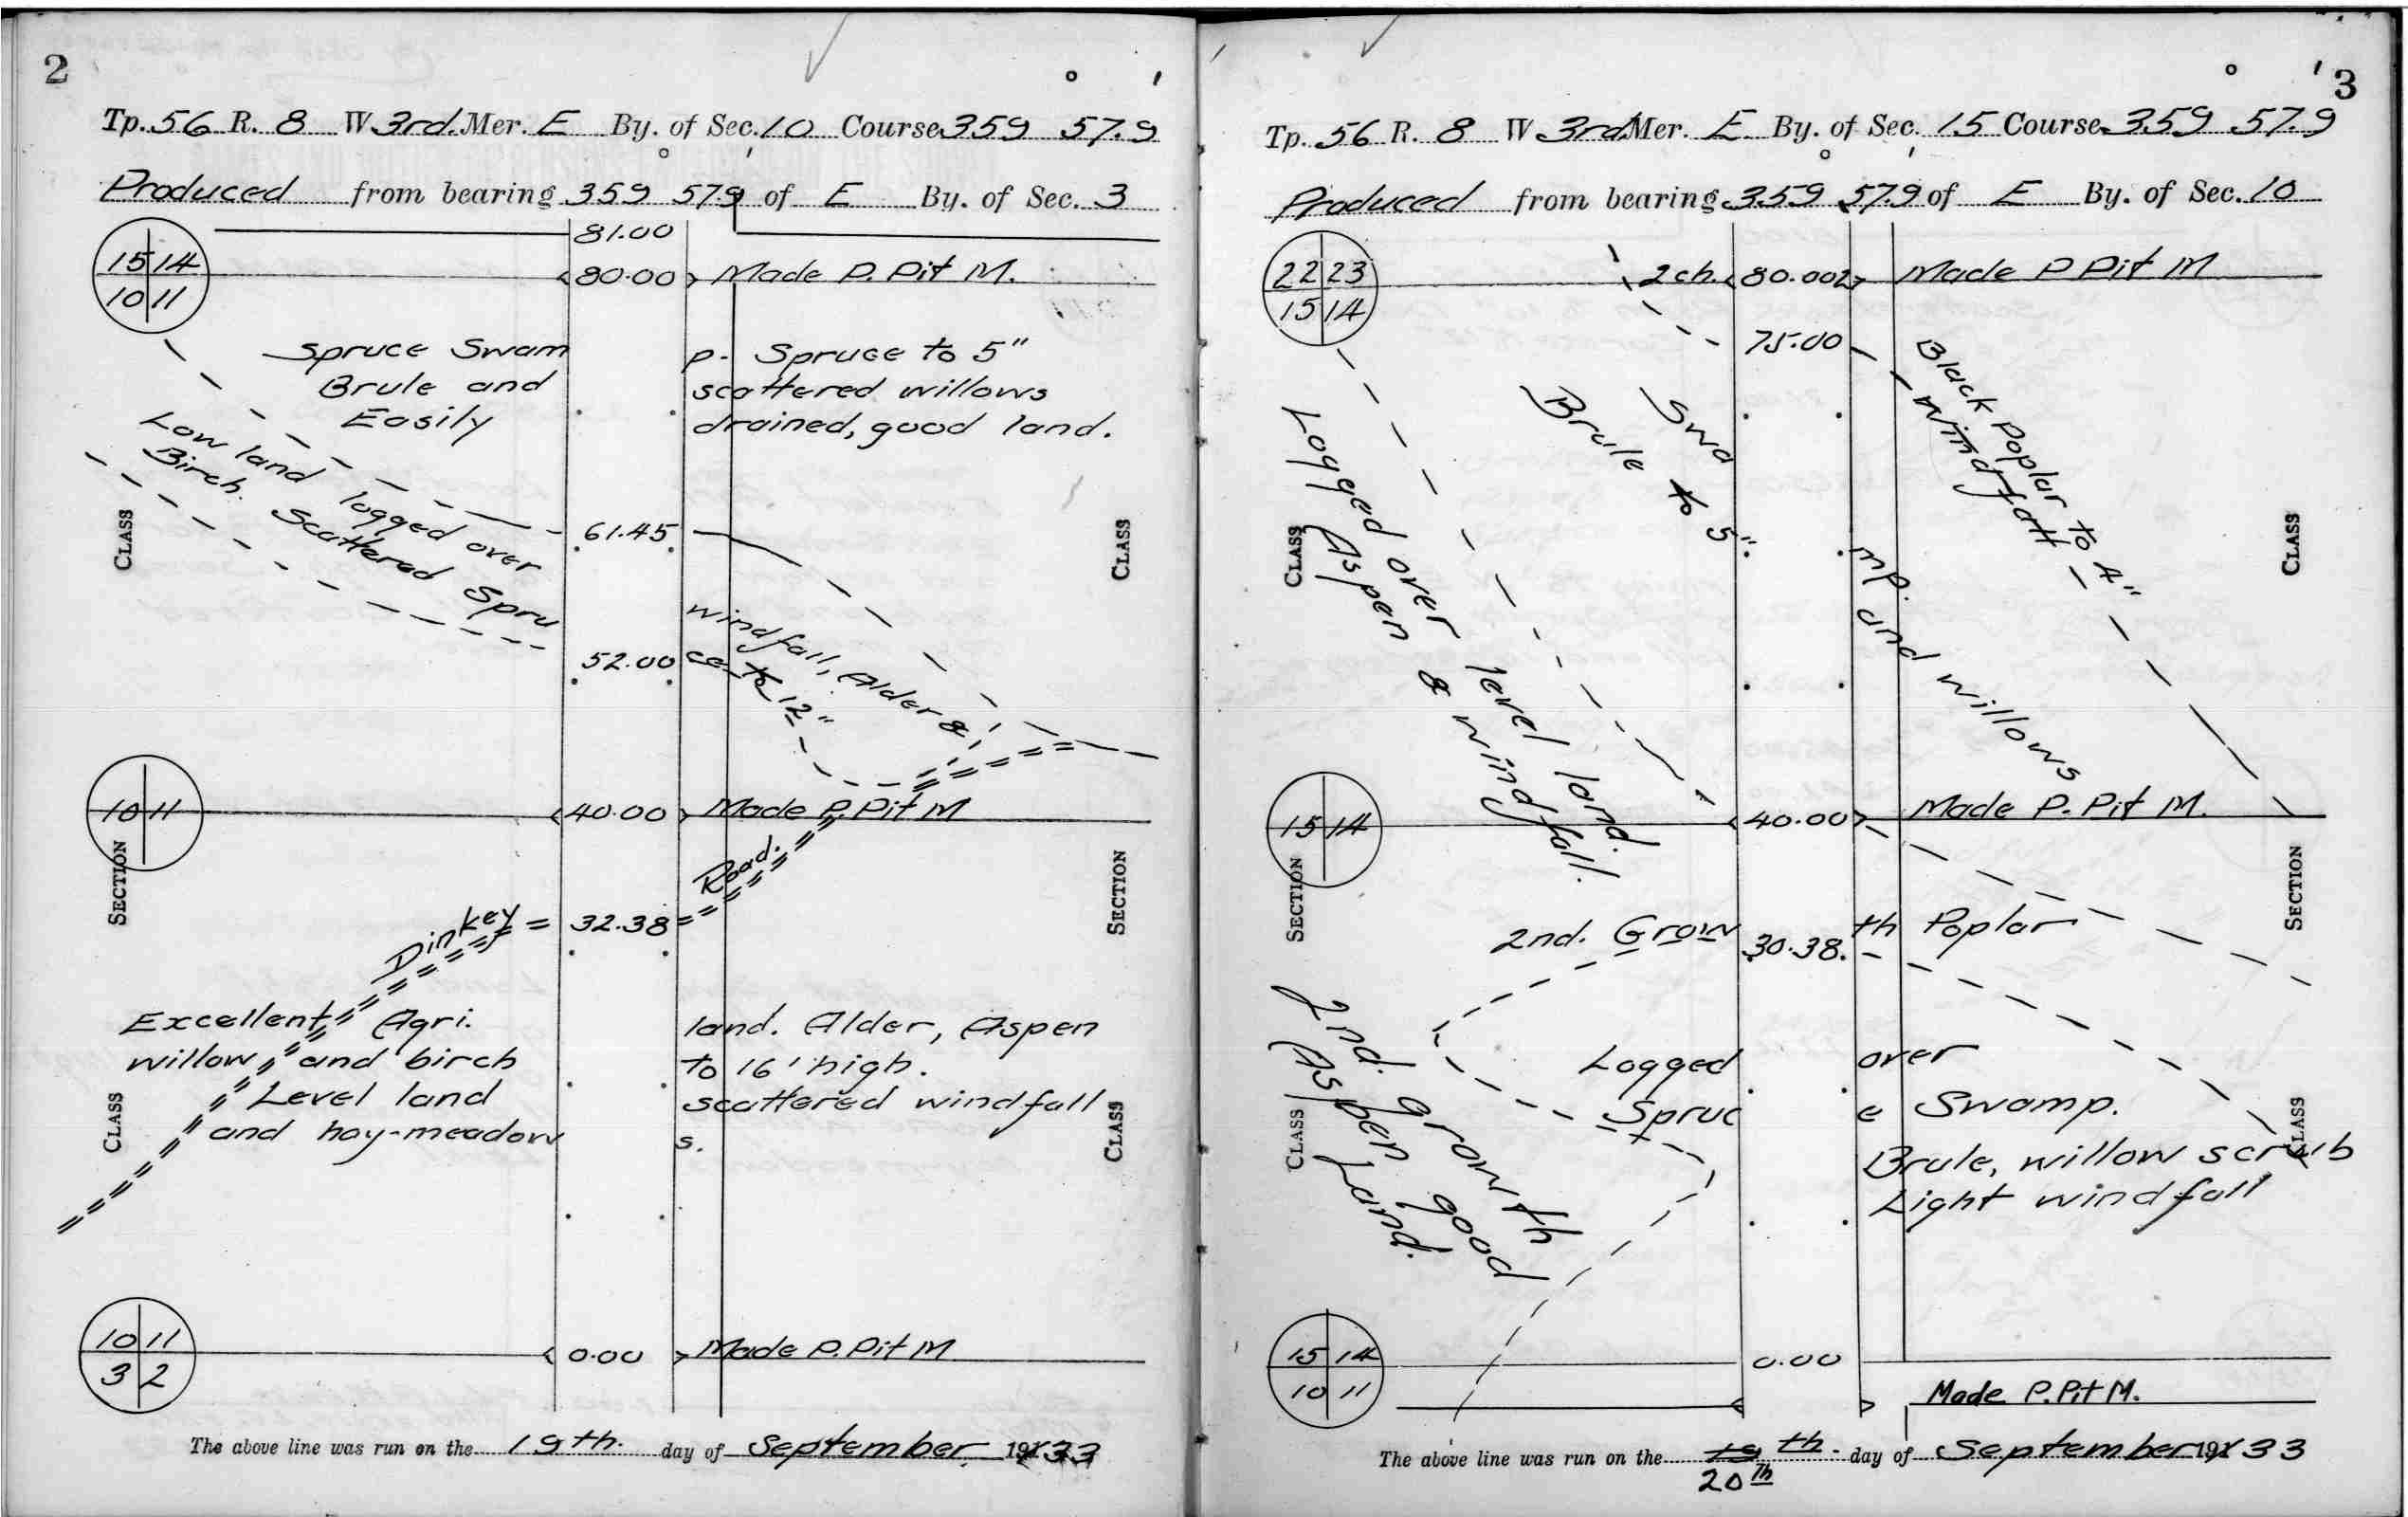 2
° '
Tp. 56 R. 8 W 3rd. Mer. E By. of Sec. 10 Course 359 57.9
° '
Produced from bearing 359 57.9 of E By. of Sec. 3
81.00
15 14
10 11
80.00 Made P. Pit M.
Spruce Swam p. Spruce to 5"
Brule and scattered willows
Easily drained, good land.
Low land logged over windfall, Alder &
Birch. Scattered Spru ce to 12"
CLASS
CLASS
61.45
52.00
10 11
40.00 Made P. Pit M
SECTION
SECTION
Dinkey 32.38 Road.
Excellent Agri. land. Alder, Aspen
willow, and birch to 16' high.
Level land scattered windfall
and hay-meadow s.
CLASS
CLASS
10 11
3 2
0.00 Made P. Pit M
The above line was run on the 19th. day of September 191 33
3
° '
Tp. 56 R. 8 W 3rd Mer. E By. of Sec. 15 Course 359 57.9
° '
Produced from bearing 359 57.9 of E By. of Sec. 10
22 23
15 14
2ch. 80.00 Made P Pit M
75.00
Black Poplar to 4"
windfall
Swa mp.
Brule to 5" and willows
Logged over level land.
Aspen & windfall.
CLASS
CLASS
15 14
40.00 Made P. Pit M.
SECTION
SECTION
2nd. Grow th Poplar
30.38
Logged over
Spruc e Swamp.
Brule, willow scrub
Light windfall
2nd. growth
Aspen good
Land.
CLASS
CLASS
15 14
10 11
0.00
Made P. Pit M.
The above line was run on the 19 th. day of September 191 33
20 Th